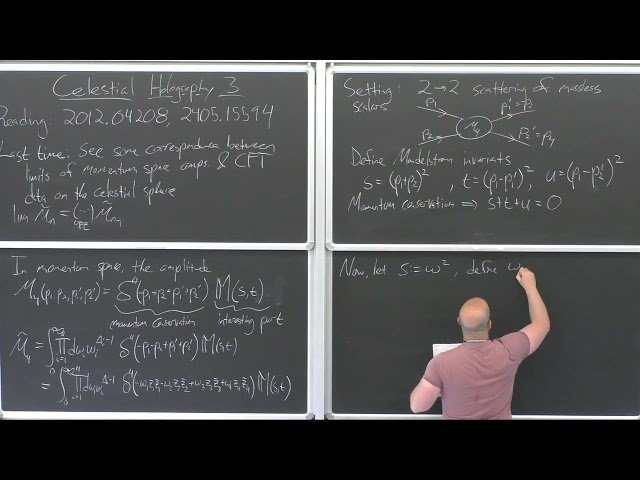 Celestial Holography 3
Reading: 2012.04208, 2405.15594
Last time: See some correspondence between
limits of momentum space amps. & CFT
data on the celestial sphere
lim M̃ₙ = (...) M̃ₙ₋₁
OPE
In momentum space, the amplitude
M₄(p₁,p₂,p₁',p₂') = δ⁴(p₁-p₂+p₁'+p₂') M(s,t)
momentum conservation
interesting part
M̃₄ = ∫₀^∞ ∏ᵢ₌₁⁴ dωᵢ ωᵢ^(Δᵢ-1) δ⁴(-p₁-p₂+p₁'+p₂') M(s,t)
= ∫₀^∞ ∏ᵢ₌₁⁴ dωᵢ ωᵢ^(Δᵢ-1) δ⁴(-ω₁z₁z̄₁-ω₂z₂z̄₂+ω₃z₃z̄₃+ω₄z₄z̄₄) M(s,t)
Setting: 2→2 scattering of massless
scalars
p₁ p₁'=p₃
M₄
p₂ p₂'=p₄
Define Mandelstam invariants
s=(p₁+p₂)², t=(p₁-p₁')², u=(p₁-p₂')²
Momentum conservation ⟹ s+t+u=0
Now, let s:=ω², define ω